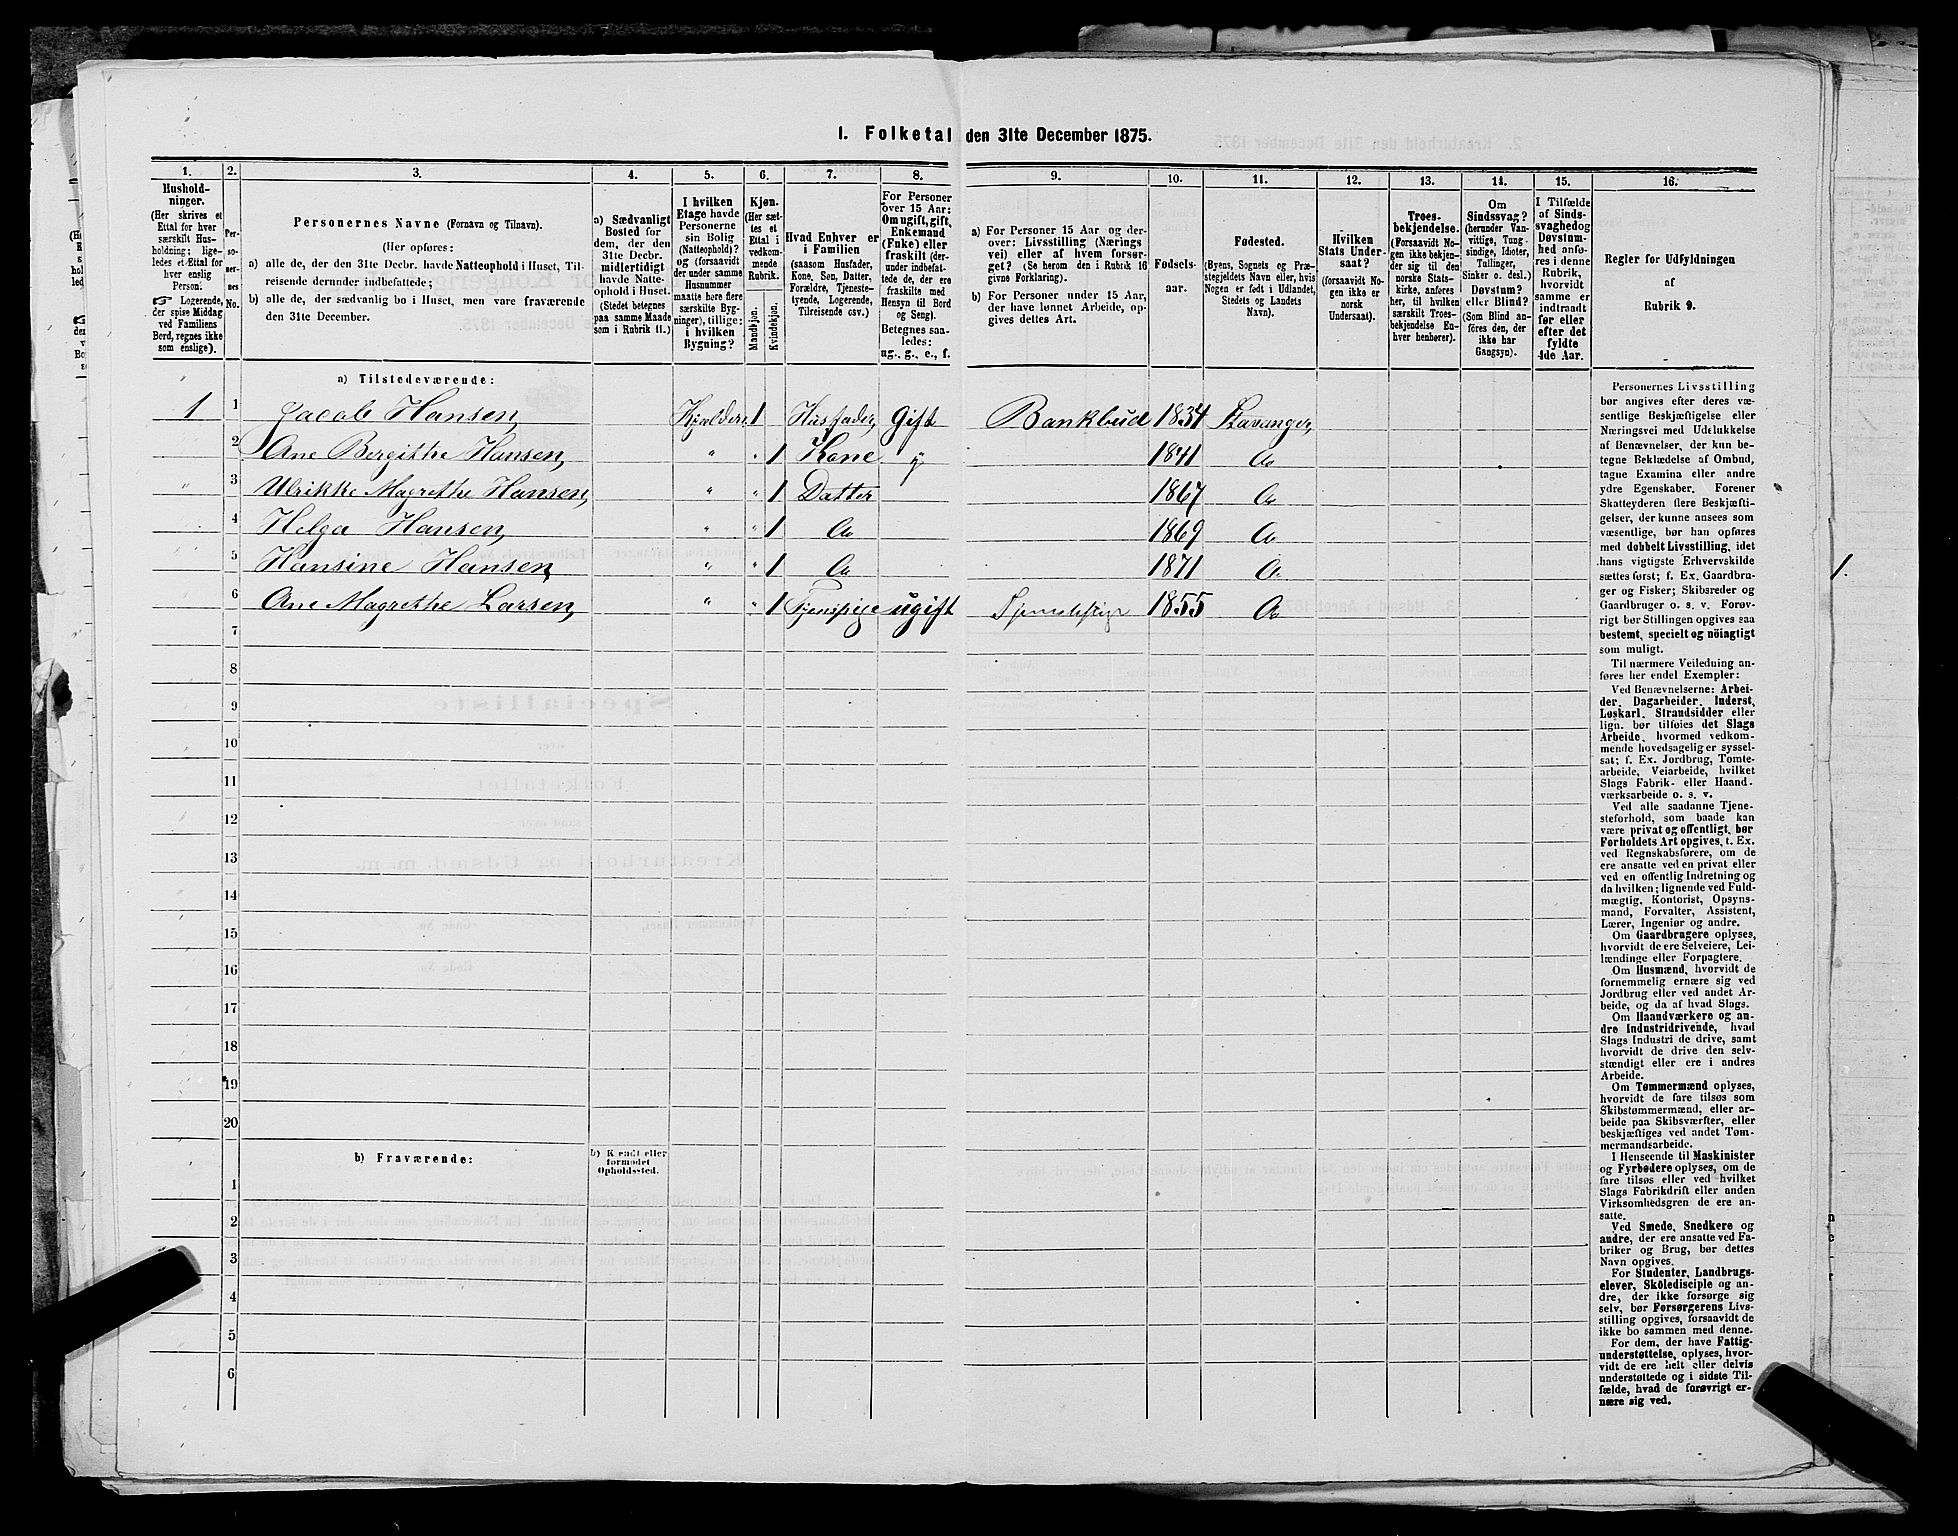 1. Folketal den 31te December 1875.
1. 2. 3. 4. 5. 6. 7. 8. 9. 10. 11. 12. 13. 14. 15. 16.
Hushold-
ninger.
(Her skrives et
Ettal for hver
særskilt Hus-
holdning; lige-
ledes et Ettal for
hver enslig
Person.
☞ Logerende,
der spise Middag
ved Familiens
Bord, regnes ikke
som enslige).
Per-
so-
ner-
nes
No.
Personernes Navne (Fornavn og Tilnavn).
(Her opføres:
a) alle de, der den 31te Decbr. havde Natteophold i Huset, Til-
reisende derunder indbefattede;
b) alle de, der sædvanlig bo i Huset, men vare fraværende
den 31te December.
a) Sædvanligt
Bosted for
dem, der den
31te Decbr.
midlertidigt
havde Natte-
ophold i Huset.
(Stedet betegnes
paa samme Maade
som i Rubrik 11.)
I hvilken
Etage havde
Personerne
sin Bolig
(Natteophold)?
og (forsaavidt
der under samme
Husnummer
maatte høre flere
særskilte Byg-
ninger), tillige:
i hvilken
Bygning?
Kjøn.
(Her sæt-
tes et
Ettal i
vedkom-
mende
Rubrik.
Mandkjøn.
Kvindekjøn.
Hvad Enhver er
i Familien
(saasom Husfader,
Kone, Søn, Datter,
Forældre, Tjeneste-
tyende, Logerende,
Tilreisende osv.)
For Personer
over 15 Aar:
Om ugift, gift,
Enkemand
(Enke) eller
fraskilt (der-
under indbefat-
tede de, der ere
fraskilte med
Hensyn til Bord
og Seng).
Betegnes saa-
ledes:
ug., g., e., f.
a) For Personer 15 Aar og der-
over: Livsstilling (Nærings
vei) eller af hvem forsør-
get? (Se herom den i Rubrik 16
givne Forklaring).
b) For Personer under 15 Aar,
der have lønnet Arbeide, op-
gives dettes Art.
Fødsels-
aar.
Fødested.
(Byens, Sognets og Præ-
stegjeldets Navn eller, hvis
Nogen er født i Udlandet,
Stedets og Landets
Navn).
Hvilken
Stats Under-
saat?
(forsaavidt No-
gen ikke er
norsk
Undersaat).
Troes-
bekjendelse.
(Forsaavidt No-
gen ikke bekjen-
der sig til den
norske Stats-
kirke, anføres
her, til hvilken
særskilt Troes-
bekjendelse En-
hver henhører).
Om
Sindssvag?
(herunder Van-
vittige, Tung-
sindige, Idioter,
Tullinger,
Sinker o. desl.)
Døvstum?
eller Blind?
(Som Blind an-
føres den, der
ikke har
Gangsyn).
I Tilfælde
af Sinds-
svaghed og
Døvstum-
hed anfø-
res i denne
Rubrik,
hvorvidt
samme er
indtraadt
før eller
efter det
fyldte
4de Aar.
Regler for Udfyldningen
af
Rubrik 9.
a) Tilstedeværende:
1 1 Jacob Hansen, Kjelder 1 Husfader, Gift Bankbud 1834 Stavanger,
2 Ane Bergithe Hansen, " " 1 Kone " 1841 Do
" 3 Ulrikke Magrethe Hansen, " " 1 Datter 1867 Do
4 Helga Hansen, " " 1 Do 1869 Do
5 Hansine Hansen, " " 1 Do 1871 Do
6 Ane Magrethe Larsen, " " 1 Tjenspige ugift Tjenestepige 1855 Do
7
8
9
10
11
12
13
14
15
16
17
18
19
20
b) Fraværende: b) Kjendt eller
formodet
Opholdssted.
1
2
3
4
5
6
Personernes Livsstilling
bør angives efter deres væ-
sentlige Beskjæftigelse eller
Næringsvei med Udelukkelse
af Benævnelser, der kun be-
tegne Beklædelse af Ombud,
tagne Examina eller andre
ydre Egenskaber. Forener
Skatteyderen flere Beskjæfti-
gelser, der kunne ansees som
væsentlige, bør han opføres
med dobbelt Livsstilling, idet
hans vigtigste Erhvervskilde
sættes først; f. Ex. Gaardbru-
ger og Fisker; Skibsreder og
Gaardbruger o. s. v. Forøv-
rigt bør Stillingen opgives saa
bestemt, specielt og nöiagtigt
som muligt.
Til nærmere Veiledning an-
føres her endel Exempler:
Ved Benævnelserne: Arbei-
der, Dagarbeider, Inderst,
Løskarl, Strandsidder eller
lign. bør tilføies det Slags
Arbeide, hvormed vedkom-
mende hovedsagelig er syssel-
sat; f. Ex. Jordbrug, Tomte-
arbeide, Veiarbeide, hvilket
Slags Fabrik- eller Haand-
værksarbeide o. s. v.
Ved alle saadanne Tjene-
steforhold, som baade kan
være privat og offentligt, bør
Forholdets Art opgives, f. Ex.
ved Regnskabsførere, om de
ere ansatte ved en privat eller
ved en offentlig Indretning og
da hvilken; lignende ved Fuld-
mægtig, Kontorist, Opsyns-
mand, Forvalter, Assistent,
Lærer, Ingeniør og andre.
Om Gaardbrugere oplyses,
hvorvidt de ere Selveiere, Lei-
lændinge eller Forpagtere.
Om Husmænd, hvorvidt de
fornemmelig ernære sig ved
Jordbrug eller ved andet Ar-
beide, og da af hvad Slags.
Om Haandværkere og an-
dre Industridrivende, hvad
Slags Industri de drive, samt
hvorvidt de drive den selv-
stændigt eller ere i andres
Arbeide.
Om Tømmermænd oplyses,
hvorvidt de fare tilsøs som
Skibstømmermænd, eller ar-
beide paa Skibsværfter, eller
beskjæftiges ved andet Tøm-
mermandsarbeide.
I Henseende til Maskinister
og Fyrbødere oplyses, om de
fare tilsøs eller ved hvilket
Slags Fabrikdrift eller anden
Virksomhedsgren de ere an-
satte.
Ved Smede, Snedkere og
andre, der ere ansatte ved Fa-
briker og Brug, bør dettes
Navn opgives.
For Studenter, Landbrugs-
elever, Skoledisciple og an-
dre, der ikke forsørge sig
selv, bør Forsørgerens Livs-
stilling opgives, forsaavidt de
ikke bo sammen med denne.
For dem, der have Fattig-
understøttelse, oplyses, hvor-
vidt de ere helt eller delvis
understøttede og i sidste Til-
fælde, hvad de forøvrigt er-
nære sig ved.